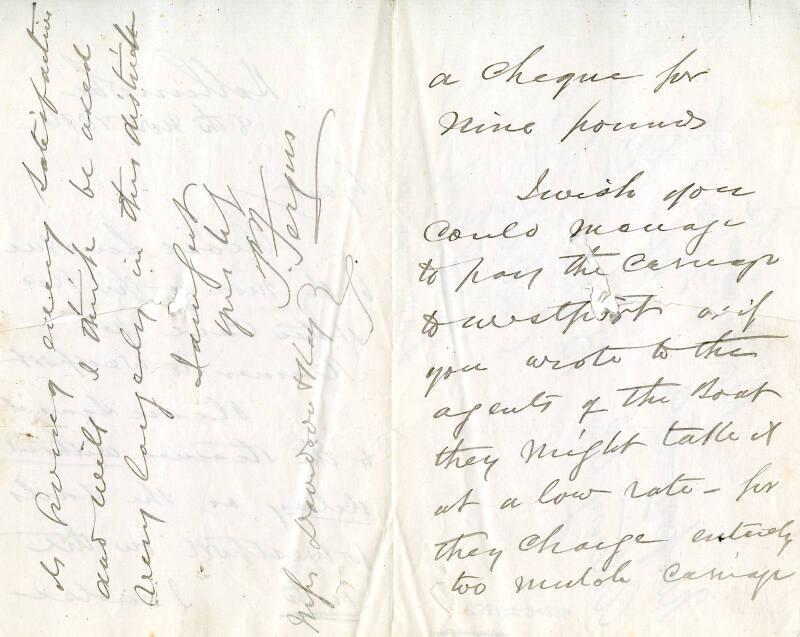 a cheque for
nine pounds
I wish you
could manage
to pay the carriage
to westport or if
you wrote to the
agents of the Boat
they might take it
at a low rate - for
they charge entirely
too much carriage
is giving every satisfaction
and will I think be used
very largely in this district
I am gent
yrs
Fergus
Messrs & Kay